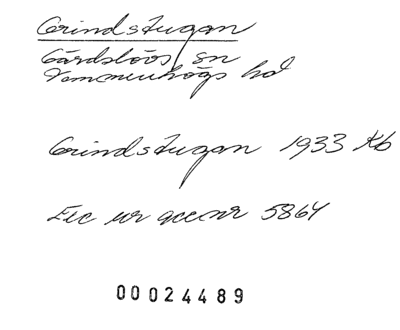 Grindstugan
Gärdslövs sn
Vemmenhögs hd
Grindstugan 1933 Kb
Exc ur accnr 5864
00024489